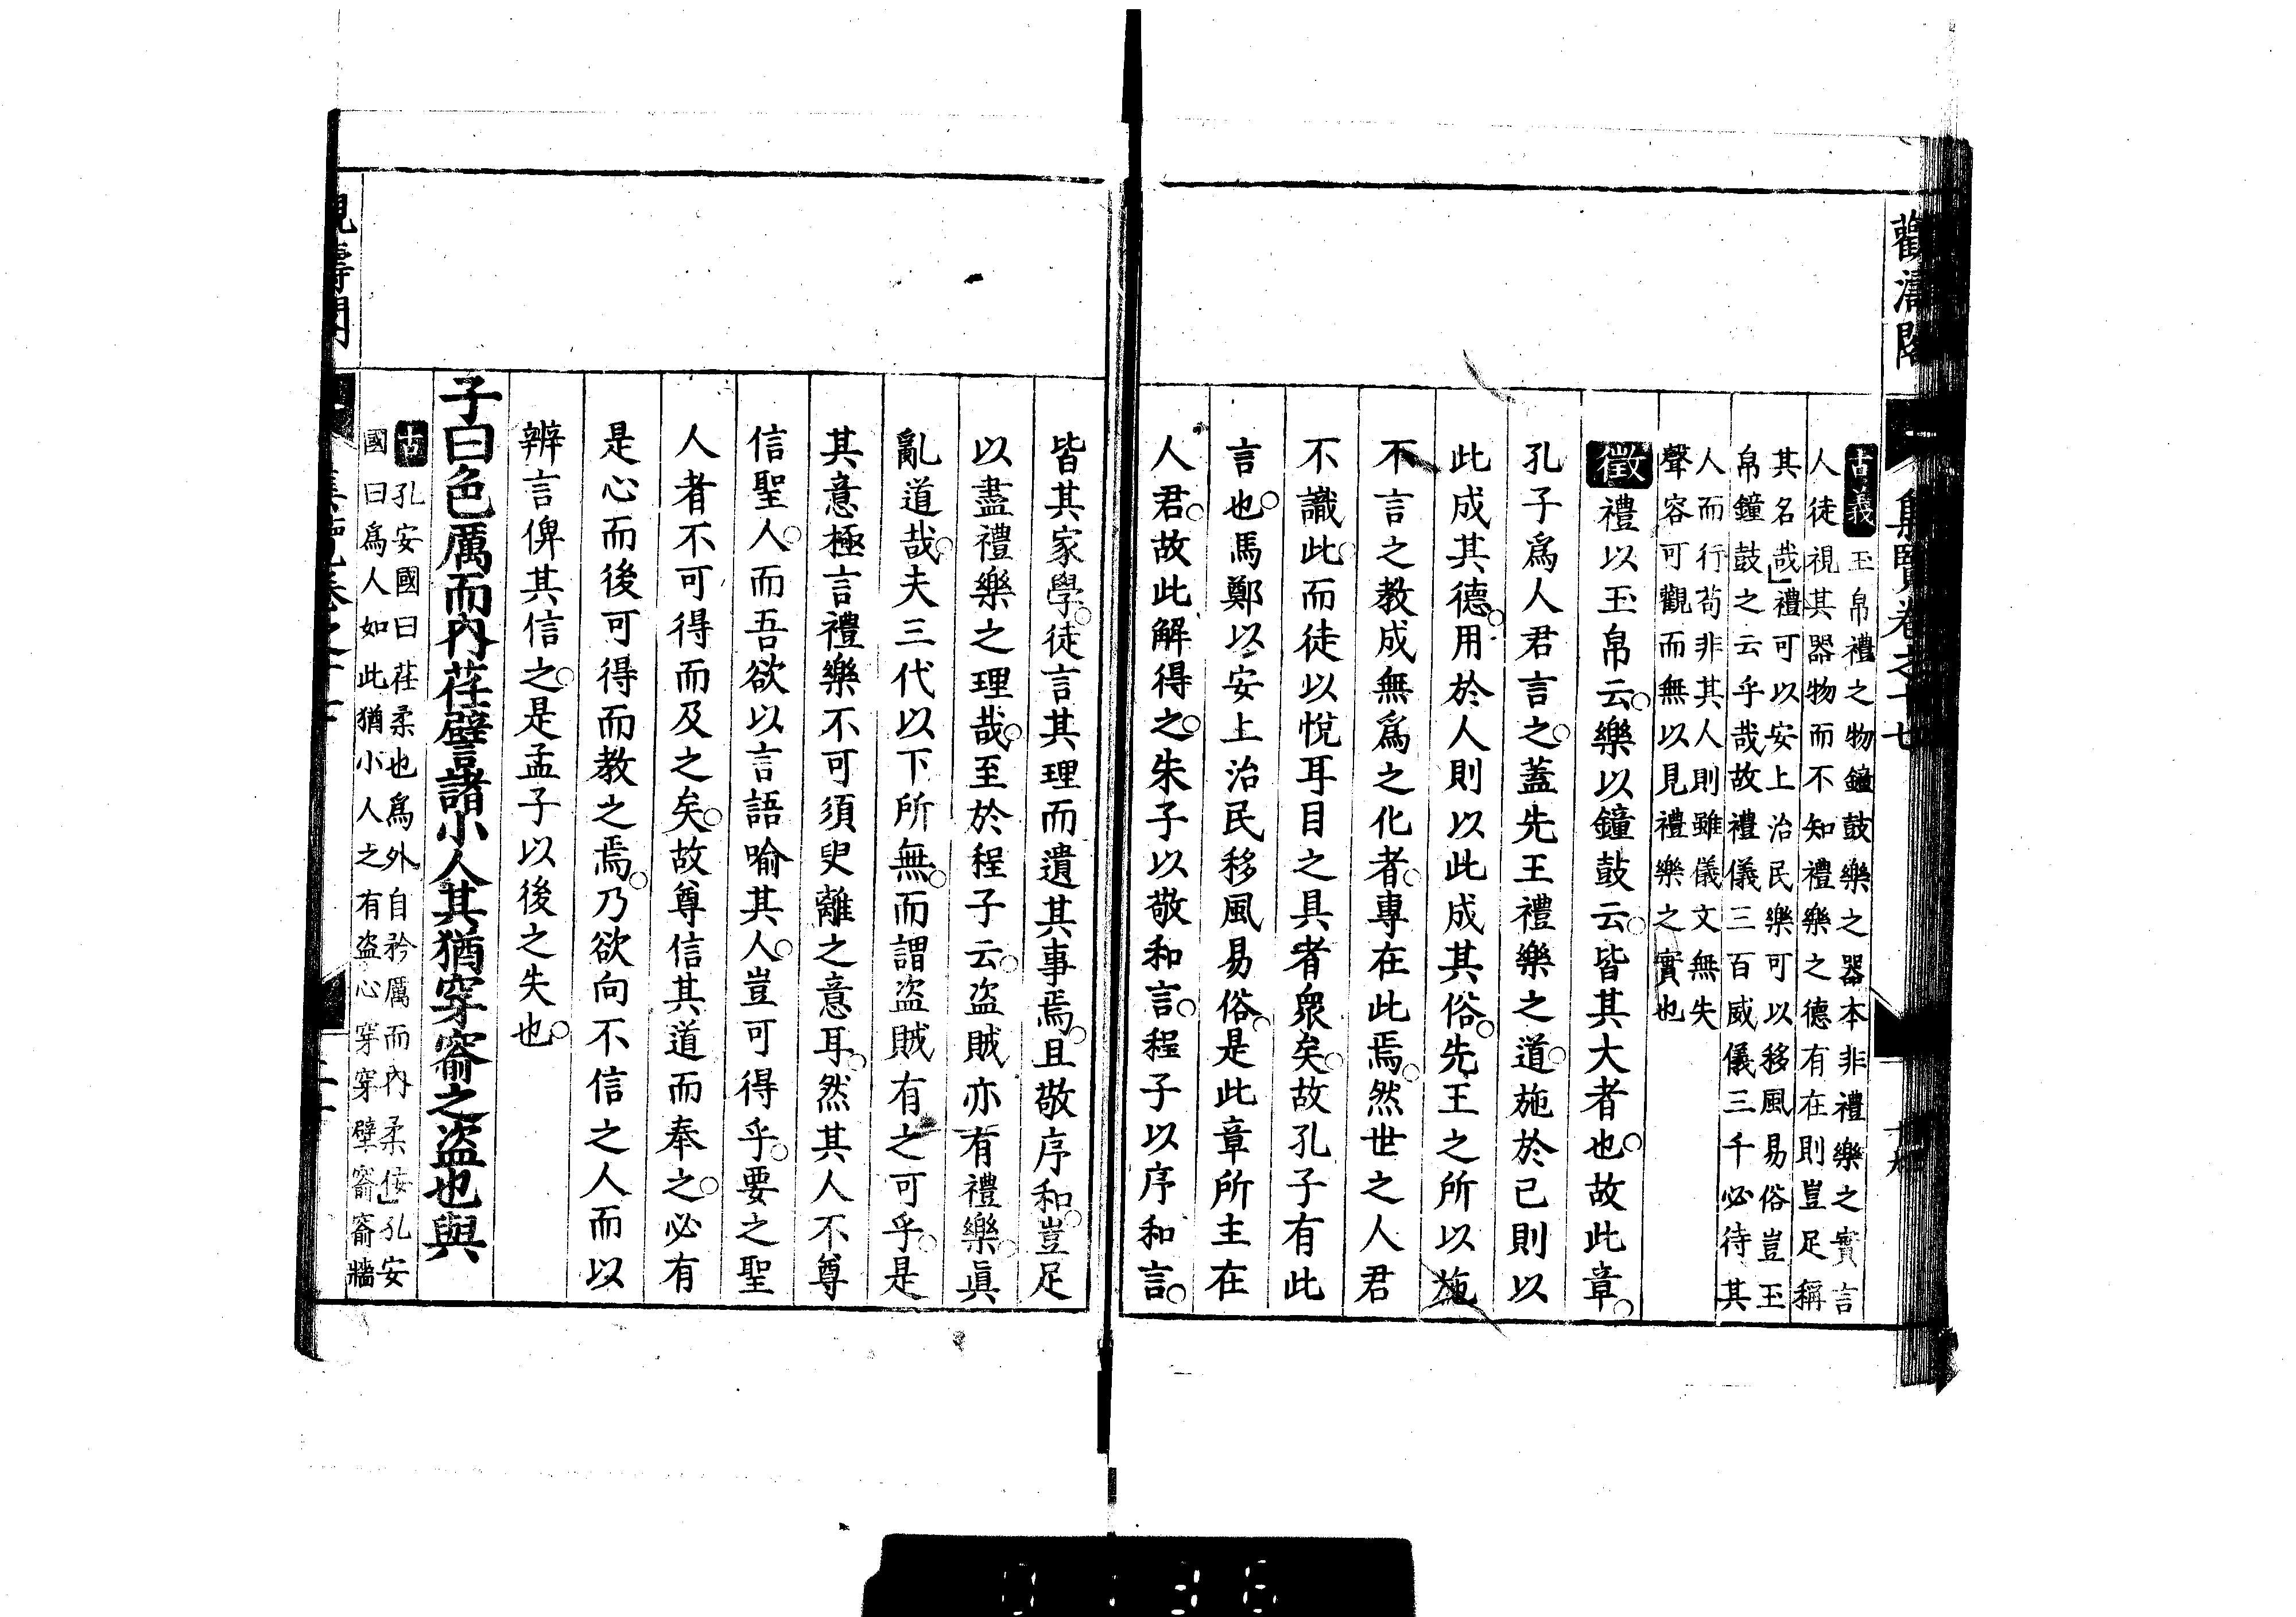 觀濤閣
集覽卷之十七
十九
古義玉帛禮之物鐘鼓樂之器本非禮樂之實言
人徒視其器物而不知禮樂之德有在則豈足稱
其名哉」禮可以安上治民樂可以移風易俗豈玉
帛鐘鼓之云乎哉故禮儀三百威儀三千必待其
人而行苟非其人則雖儀文無失
聲容可觀而無以見禮樂之實也
徵禮以玉帛云○樂以鐘鼓云○皆其大者也○故此章○
孔子爲人君言之○蓋先王禮樂之道○施於己則以
此成其德○用於人則以此成其俗○先王之所以施
不言之教成無爲之化者○專在此焉○然世之人君
不識此○而徒以悅耳目之具者衆矣○故孔子有此
言也○馬鄭以安上治民移風易俗○是此章所主在
人君○故此解得之○朱子以敬和言○程子以序和言○
皆其家學○徒言其理而遺其事焉○且敬序和○豈足
以盡禮樂之理哉○至於程子云○盜賊亦有禮樂○眞
亂道哉○夫三代以下所無○而謂盜賊有之可乎○是
其意極言禮樂不可須臾離之意耳○然其人不尊
信聖人○而吾欲以言語喻其人○豈可得乎○要之聖
人者不可得而及之矣○故尊信其道而奉之○必有
是心而後可得而教之焉○乃欲向不信之人而以
辨言俾其信之○是孟子以後之失也○
子曰色厲而內荏譬諸小人其猶穿窬之盜也與
古孔安國曰荏柔也爲外自矜厲而內柔佞」孔安
國曰爲人如此猶小人之有盜心穿穿壁窬窬牆